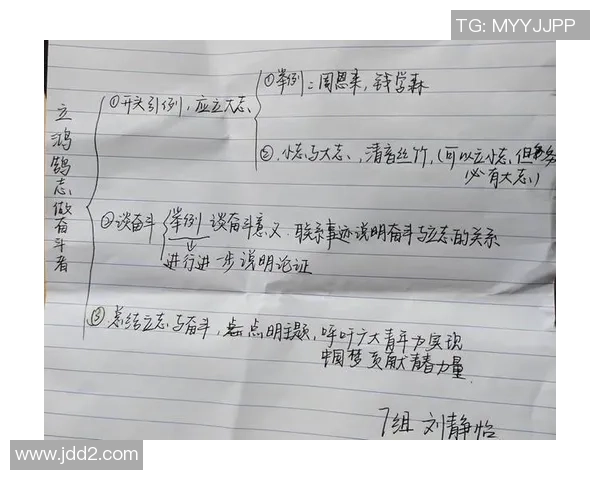 TG: MYYJJPP
立鸿鹄志做奋斗者
①开头引例,应立大志
①举例:周恩来,钱学森
②.小志与大志,清音丝竹,(可以立小志,但
必有大志)
②谈奋斗
举例 谈奋斗意义.联系事迹说明奋斗与立志的关系
进行进一步说明论证
③总结立志与奋斗,点明主题,呼吁广大青年为实现
中国梦贡献青春力量.
7组 刘静怡
www.jdd2.com